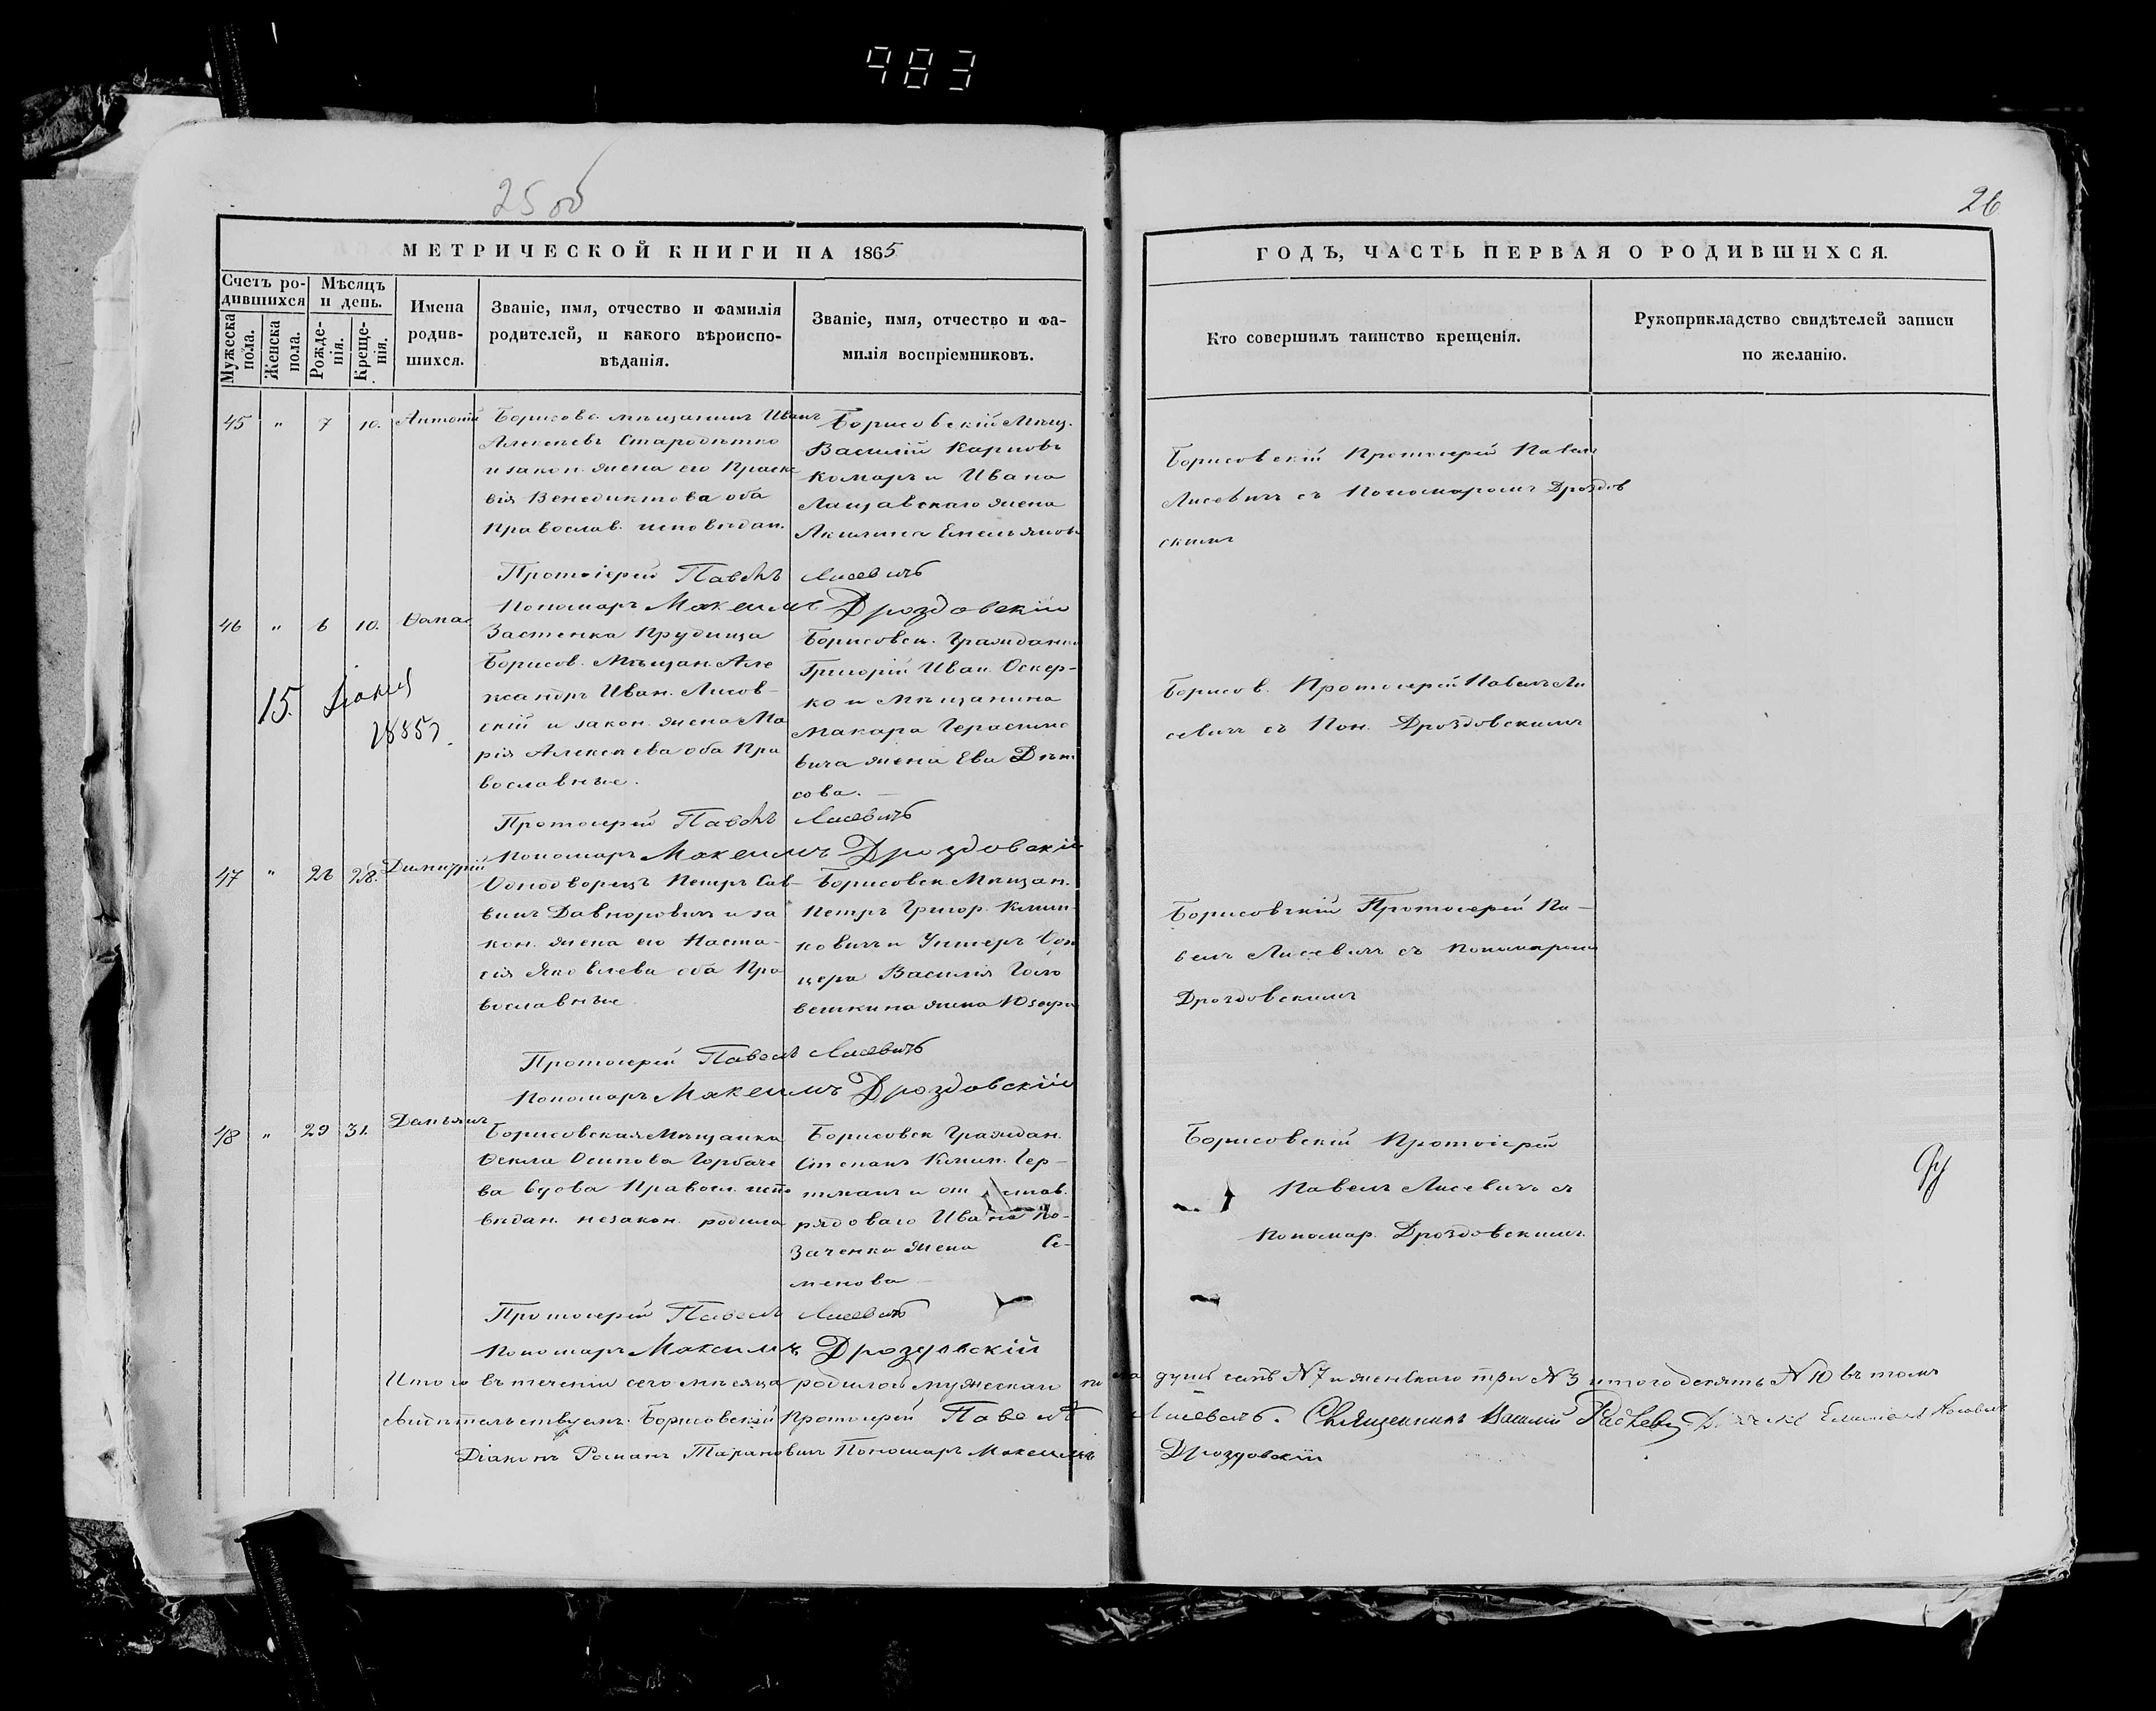 983
25 об
26
МЕТРИЧЕСКОЙ КНИГИ НА 1865
ГОДЪ, ЧАСТЬ ПЕРВАЯ О РОДИВШИХСЯ.
Счетъ родившихся
Мужеска пола.
Женска пола.
Мѣсяцъ и день.
Рожденія.
Крещенія.
Имена родившихся.
Званіе, имя, отчество и фамилія родителей, и какого вѣроисповѣданія.
Званіе, имя, отчество и фамилія воспріемниковъ.
Кто совершилъ таинство крещенія.
Рукоприкладство свидѣтелей записи по желанію.
45 " 7 10. Антоній
Борисовс. мѣщанинъ Иванъ
Алексѣевъ Стародѣтко
и закон. жена его Праске
вія Венедиктова оба
Православ. исповѣдан.
Борисовскій Мѣщ.
Василій Карповъ
Комаръ и Ивана
жена
Акилина Емельянов.
Борисовскій Протоіерей Павелъ
Лисевичъ съ Пономаромъ Дроздов
скимъ
Протоіерей Павелъ Лисевичъ
Пономаръ Максимъ Дроздовскій
46 " 6 10. Ѳома
Застенка Прудища
Борисов. Мѣщан. Але
ксандръ Иван. Лисов-
скій и закон. жена Ма
рія Алексѣева оба Пра
вославные.
Борисовск. Граждан.
Григорій Иван. Оскер-
ко и Мѣщанина
Макара Герасимо
вича жена Ева Дени
сова. —
15.
Борисов. Протоіерей Павелъ Ли
севичъ съ Пон. Дроздовскимъ
Протоіерей Павелъ Лисевичъ
Пономаръ Максимъ Дроздовскій
47 " 26 28. Димитрій
Однодворецъ Петръ Сав-
винъ Давноровичъ и за
кон. жена его Наста-
сія Яковлева оба Пра
вославные.
Борисовск. Мѣщан.
Петръ Григор. Клим
ковичъ и Унтеръ Офи
цера Василія Голо
вешкина жена Юзефа
Борисовскій Протоіерей Па-
велъ Лисевичъ съ Пономаромъ
Дроздовскимъ
Протоіерей Павелъ Лисевичъ
Пономаръ Максимъ Дроздовскій
48 " 29 31. Даміанъ
Борисовская Мѣщанка
Ѳекла Осипова Горбаче
ва вдова Правосл. испо
вѣдан. незакон. родила
Борисовск. Граждан.
Степанъ Клим. Гер-
и отстав.
рядоваго Ивана Ко-
заченка жена Се-
менова
Борисовскій Протоіерей
Павелъ Лисевичъ съ
Пономар. Дроздовскимъ.
Протоіерей Павелъ Лисевичъ
Пономаръ Максимъ Дроздовскій
Итого въ теченіи сего мѣсяца родилось мужескаго пола душъ семь №7 и женскаго три №3 итого десять №10 въ томъ
свидѣтельствуемъ. Борисовскій Протоіерей Павелъ Лисевичъ. Священникъ Василій
Діаконъ Романъ Тарановичъ Пономаръ Максимъ Дроздовскій